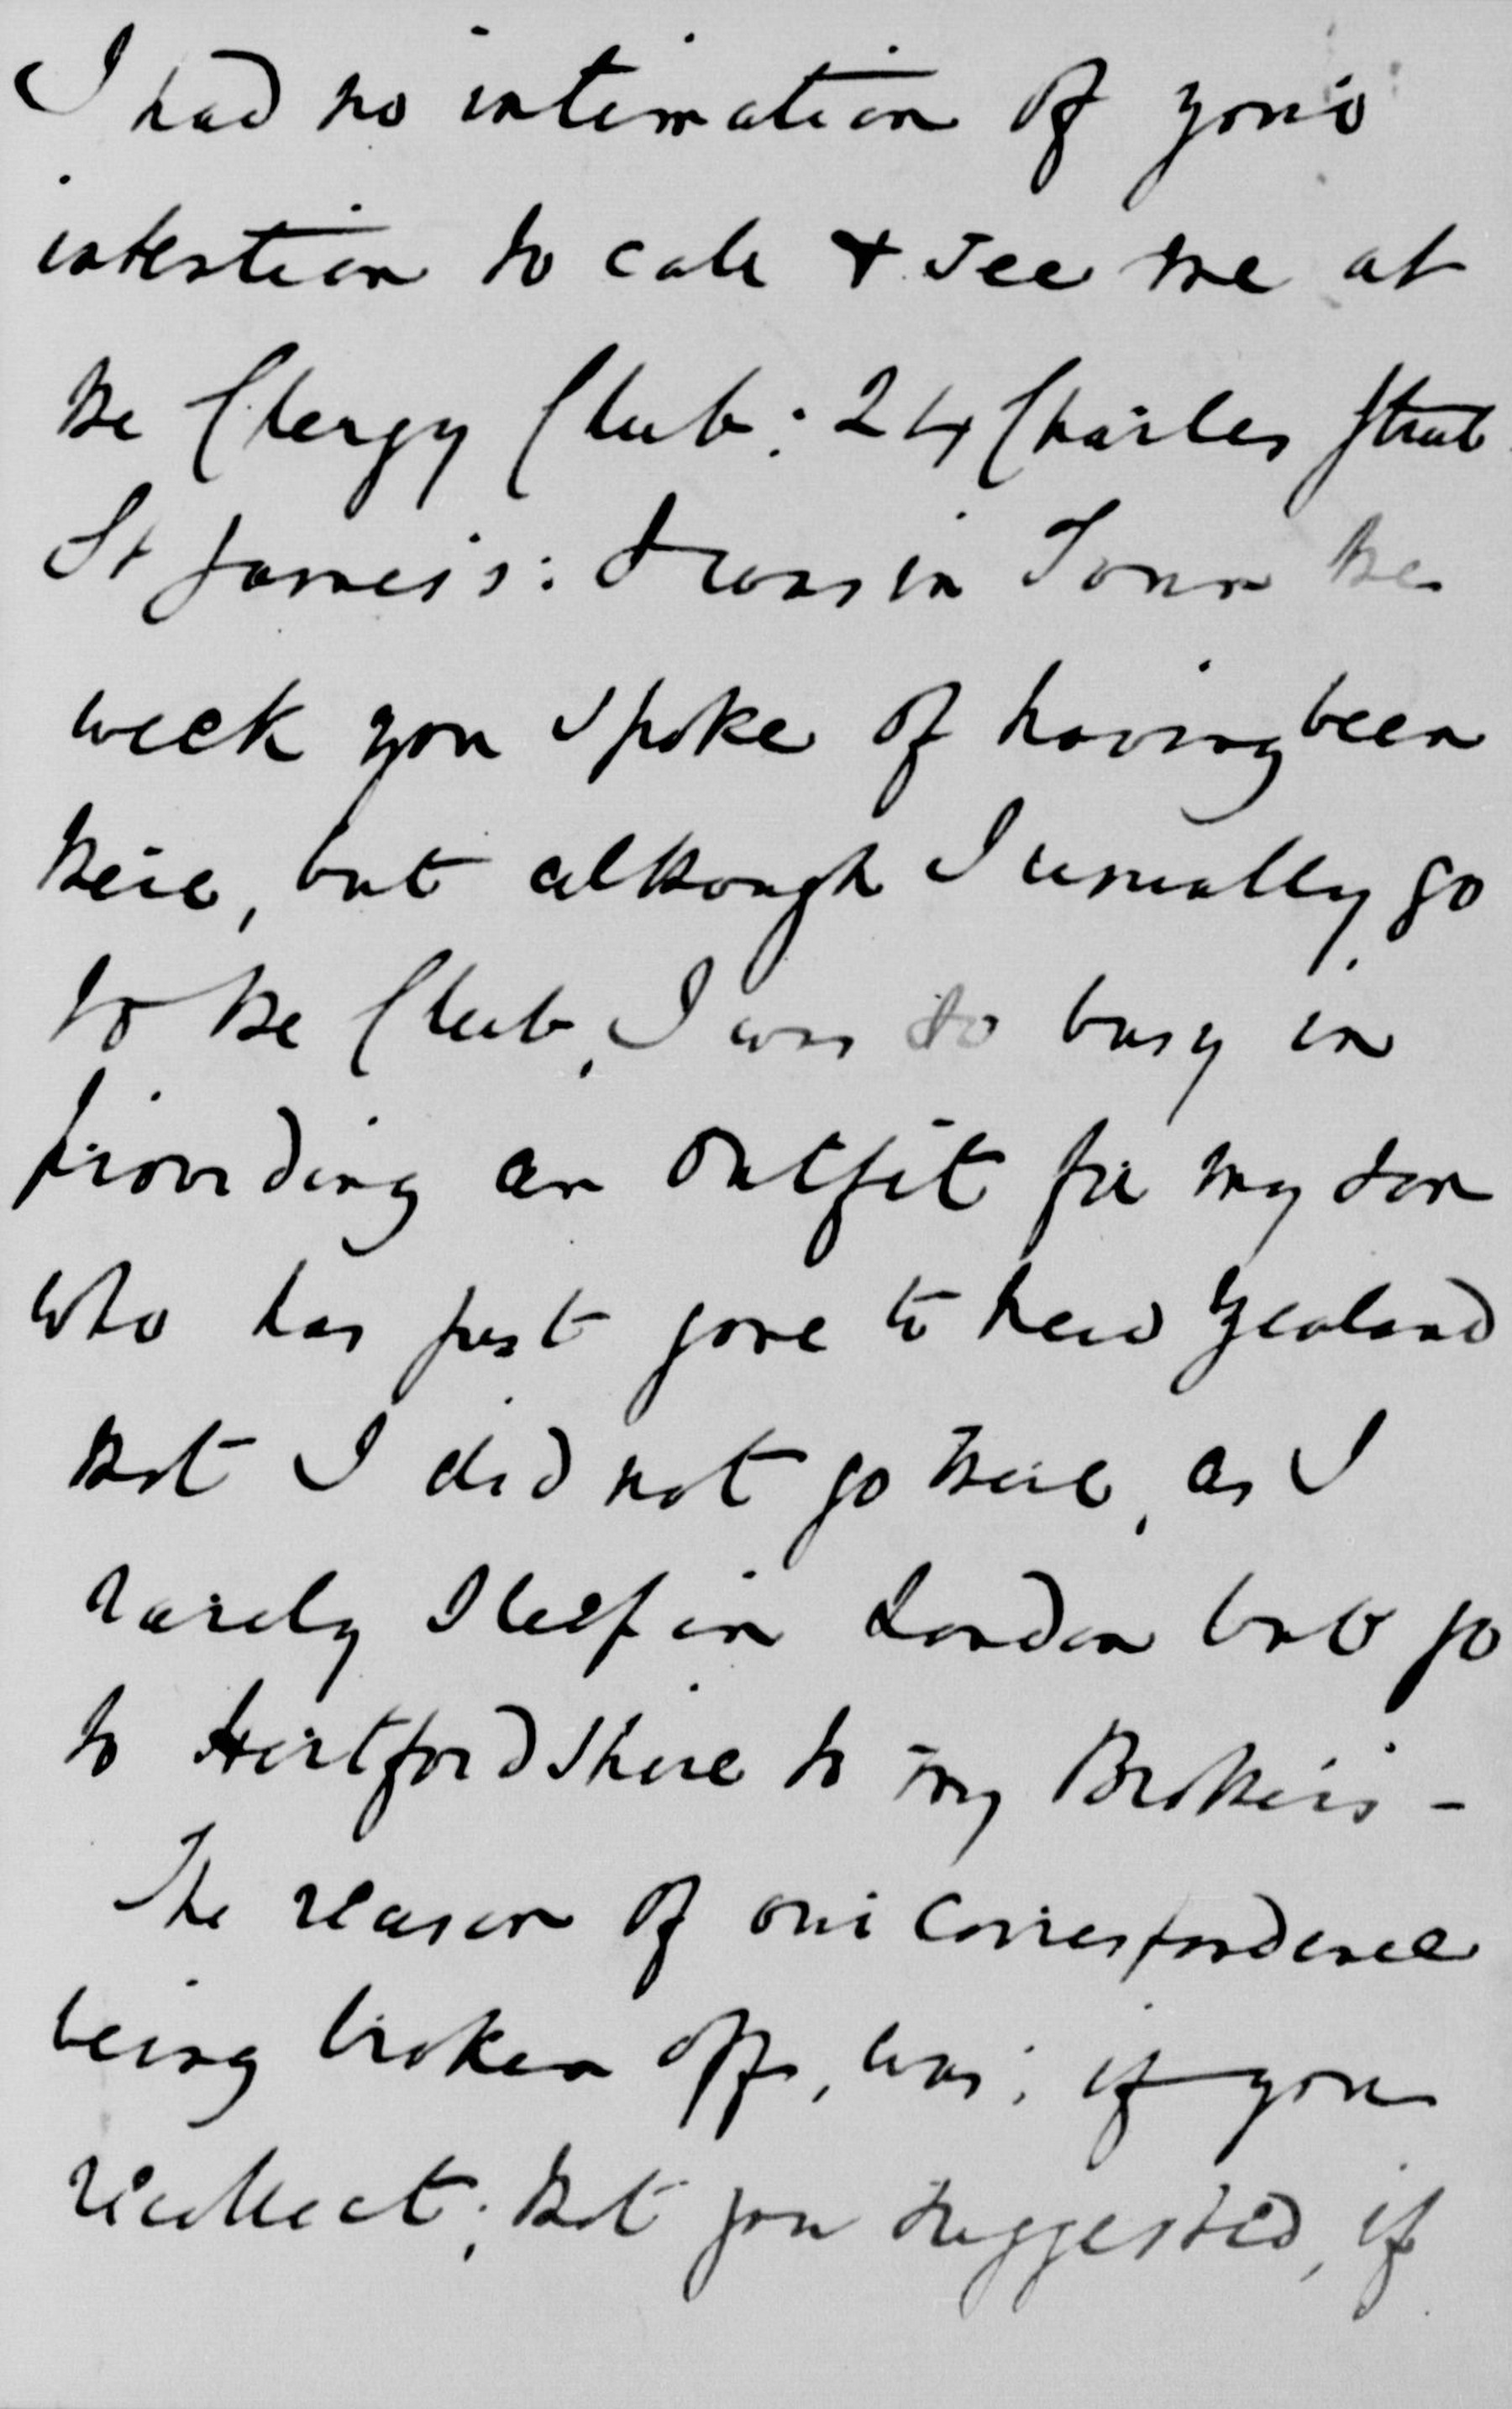 I had no intimation of your
intention to call & see me at
the Clergy Club: 24 Charles Street
St James's: I was in Town the
week you spoke of having been
there, but although I usually go
to the Club, I was so busy in
providing an outfit for my son
who has just gone to New Zealand
that I did not go there, as I
rarely sleep in London but go
to Hertfordshire to my Brother's -
The reason of our Correspondence
being broken off, was; if you
recollect; that you suggested, if